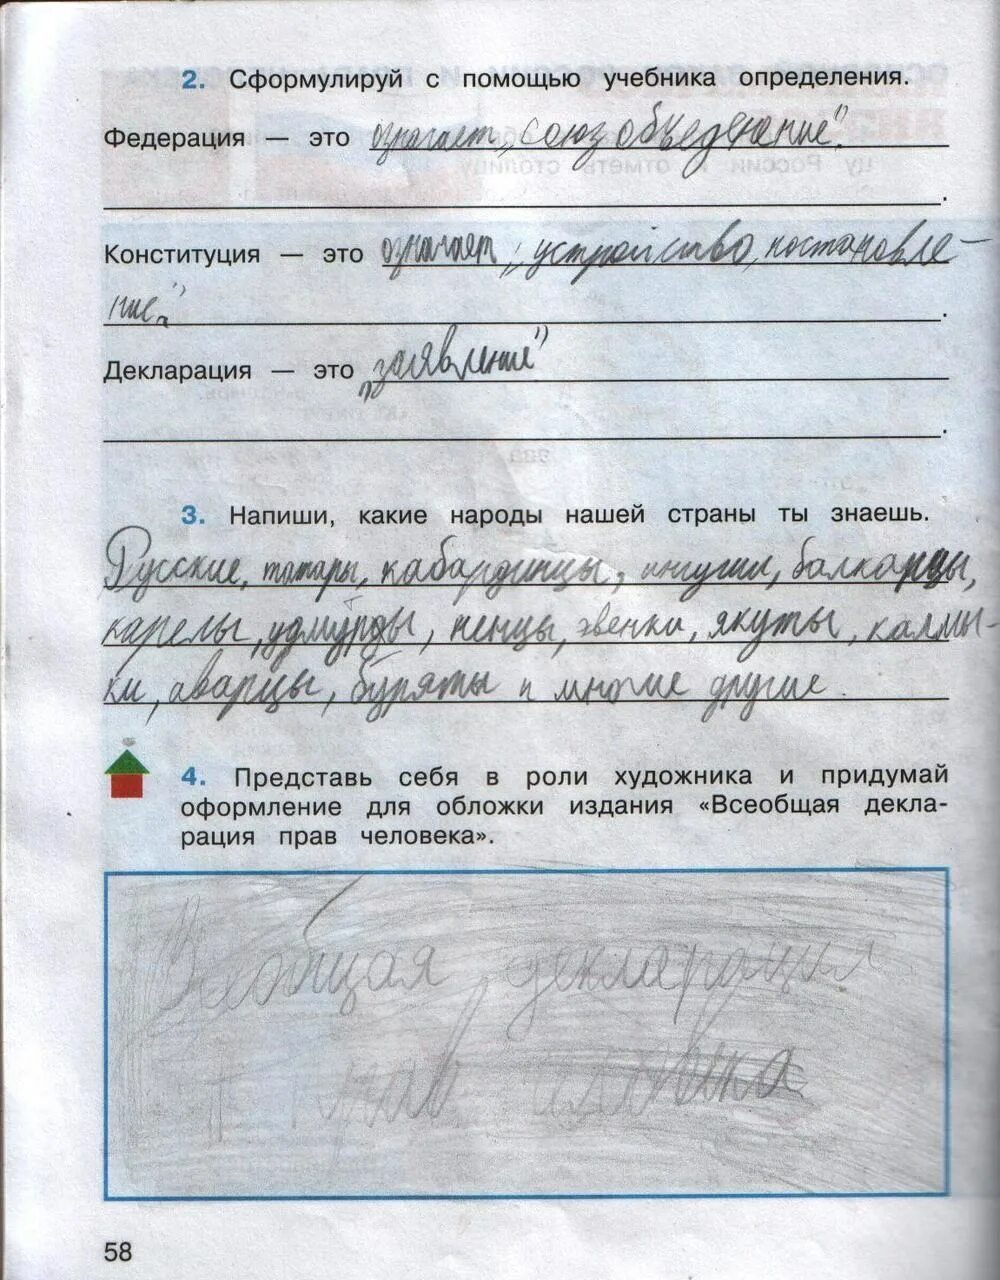 2. Сформулируй с помощью учебника определения.
Федерация — это означает „союз объеденение".
Конституция — это означает „устройство, постановле-
ние".
Декларация — это „заявление"
3. Напиши, какие народы нашей страны ты знаешь.
Русские, татары, кабардинцы, ингуши, балкарцы,
карелы, удмурды, ненцы, эвенки, якуты, калмы-
ки, аварцы, буряты и многие другие.
4. Представь себя в роли художника и придумай
оформление для обложки издания «Всеобщая декла-
рация прав человека».
Всеобщая декларация
прав человека
58